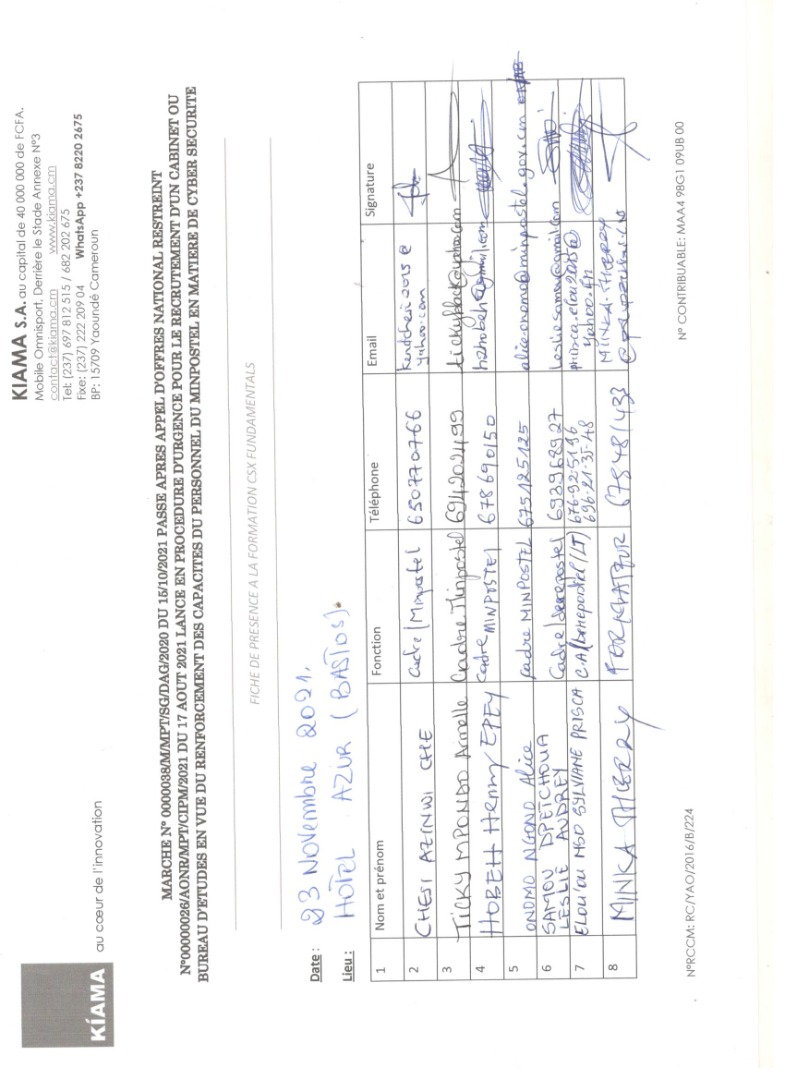 KÍAMA
au cœur de l'innovation
KIAMA S.A. au capital de 40 000 000 de FCFA.
Mobile Omnisport, Derrière le Stade Annexe N°3
contact@kiama.cm www.kiama.cm
Tel: (237) 697 812 515 / 682 202 675
Fixe: (237) 222 209 04 WhatsApp +237 8220 2675
BP: 15709 Yaoundé Cameroun
MARCHE N° 0000038/M/MPT/SG/DAG/2020 DU 15/10/2021 PASSE APRES APPEL D'OFFRES NATIONAL RESTREINT
N°00000026/AONR/MPT/CIPM/2021 DU 17 AOUT 2021 LANCE EN PROCEDURE D'URGENCE POUR LE RECRUTEMENT D'UN CABINET OU
BUREAU D'ETUDES EN VUE DU RENFORCEMENT DES CAPACITES DU PERSONNEL DU MINPOSTEL EN MATIERE DE CYBER SECURITE
FICHE DE PRESENCE A LA FORMATION CSX FUNDAMENTALS
Date : 23 Novembre 2021.
Lieu : HOTEL AZUR (BASTOS).
1 Nom et prénom Fonction Téléphone Email Signature
2 CHESI AZINWI CHE Cadre/Minpostel 650770766 kentchesi2015@
yahoo.com
3 TICKY MPONDO Armelle Cadre Minpostel 694202499 tickyblack@yahoo.com
4 HOBEH Henry EPEY Cadre MINPOSTEL 678690150 hzhobeh@gmail.com
5 ONOMO NGONO Alice Cadre MINPOSTEL 675125125 alice.onomo@minpostel.gov.cm
6 SAMOU DPETCHOUA
LESLIE AUDREY Cadre 693968927 lesliesamou@gmail.com
7 ELOUTOU MGO SYLVIANE PRISCA 676-92-51-96
696-21-35-48 prisca.elou2015@
yahoo.fr
8 MINKA THIERRY FORMATEUR 678481433 MINKA.THIERRY
N°RCCM: RC/YAO/2016/B/224
N° CONTRIBUABLE: MAA4 98G1 09UB 00